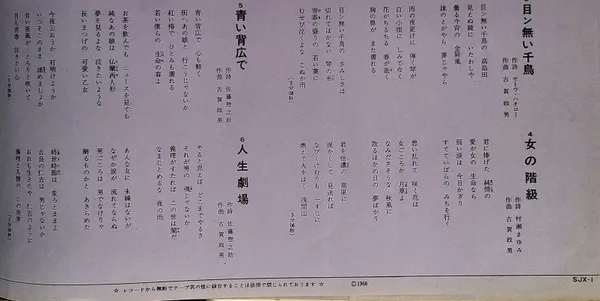 目ン無い千鳥
作詩 サトウ・ハチロー
作曲 古賀政男
目ン無い千鳥の 高島田
見えぬ鏡に いたわしや
曇る今宵の 金屏風
誰のとがやら 罪じゃやら
雨の夜更けに 弾く琴が
白い小指に しみてゆく
花がちるちる 春が逝く
胸の扉が また濡れる
目ン無い千鳥の さみしさは
切れてはかない 琴の糸
青春の盛りの 若い葉に
むせび泣くよな こぬか雨
4 女の階級
作詩 村瀬まゆみ
作曲 古賀政男
君に捧げた 純情の
愛が女の 生命なら
弱い涙は 今日かぎり
すてていばらの みちを行く
想い乱れて 咲く花は
女ごころか 月草よ
なみださそうな 秋風に
散るはかの日の 夢ばかり
君を信濃の 高原に
涙かくして 見送れば
なびくけむりも 一すじに
燃えて火をはく 浅間山
5 青い背広で
作詩 佐藤惣之助
作曲 古賀政男
青い背広で 心も軽く
街へあの娘と 行こうじゃないか
紅い椿で ひとみも濡れる
若い僕らの 生命の春よ
お茶を飲んでも ニュースを見ても
純なあの娘は 仏蘭西人形
夢を見るよな 泣きたいような
長いまつげの 可愛い乙女
今夜言おうか 打明けようか
いっそこのまま 諦めましょか
甘い夜風が とろりと吹いて
月も青春 泣きたい心
6 人生劇場
作詩 佐藤惣之助
作曲 古賀政男
やると思えば どこまでやるさ
それが男の 魂じゃないか
義理がすたれば この世は闇だ
なまじとめるな 夜の雨
あんな女に 未練はないが
なぜか涙が 流れてならぬ
男ごころは 男でなけりゃ
解るものかと あきらめた
時世時節は 変ろとままよ
吉良の仁吉は 男じゃないか
おれも生きたや 仁吉のように
義理と人情の この世界
☆ レコードから無断でテープ其の他に録音することは法律で禁じられております ☆
©1968
SJX-1